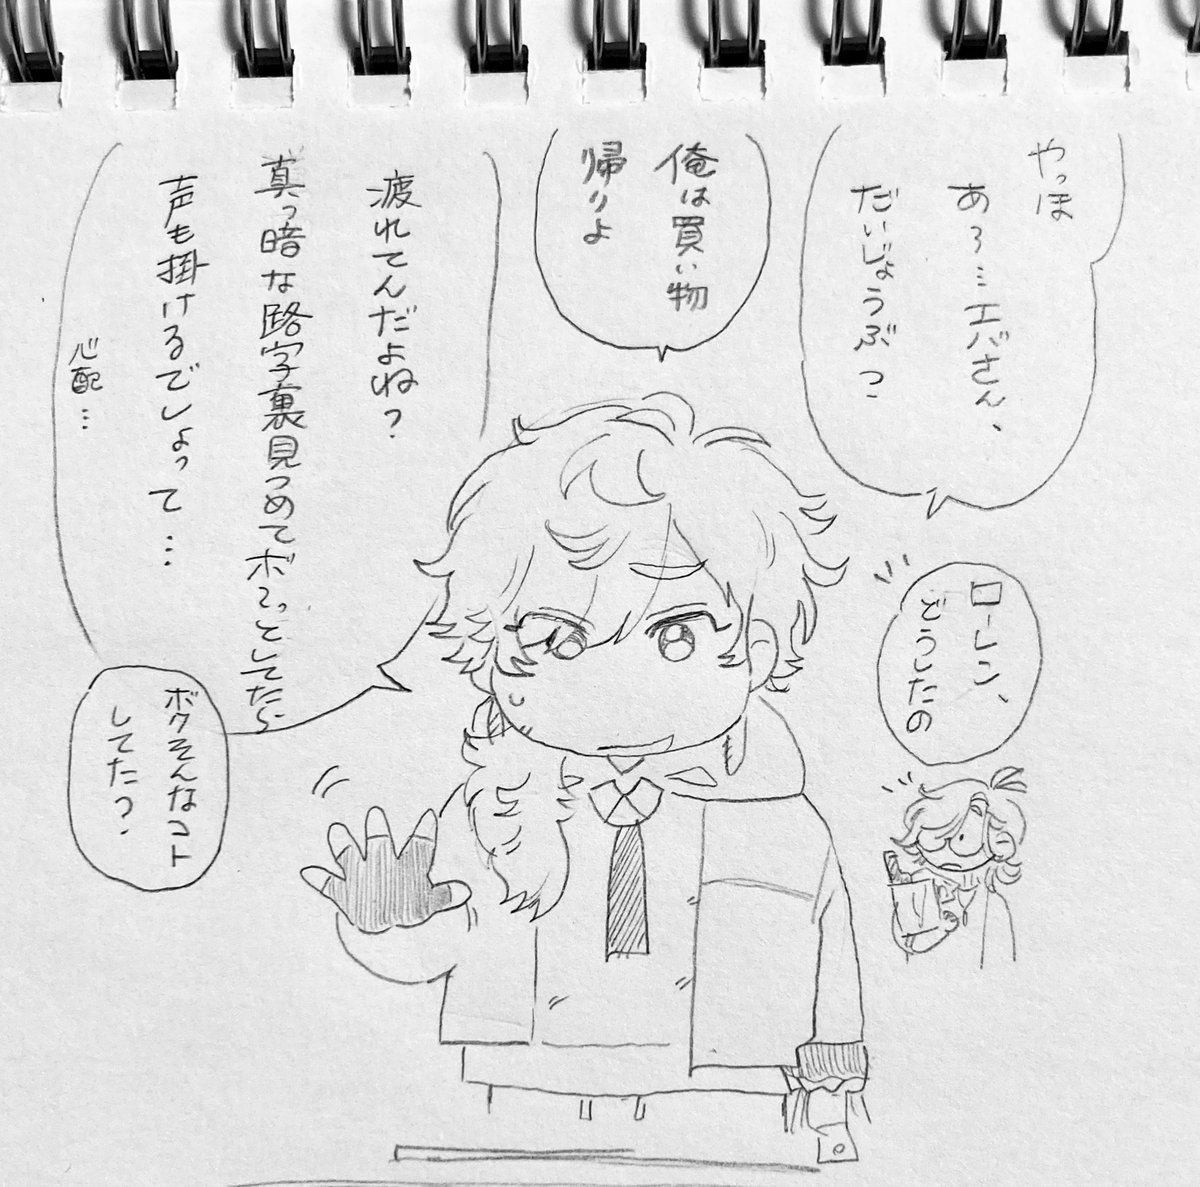 やっほ
あ〜…エバさん、
だいじょうぶっ
ローレン、
どうしたの
俺は買い物
帰りよ
疲れてんだよね?
真っ暗な路字裏見つめてボ〜っとしてたら
声も掛けるでしょって…
心配…
ボクそんなコト
してた?